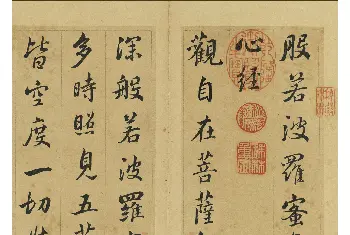 般若波羅蜜
心經
觀自在菩薩
深般若波羅
多時照見五
皆空度一切